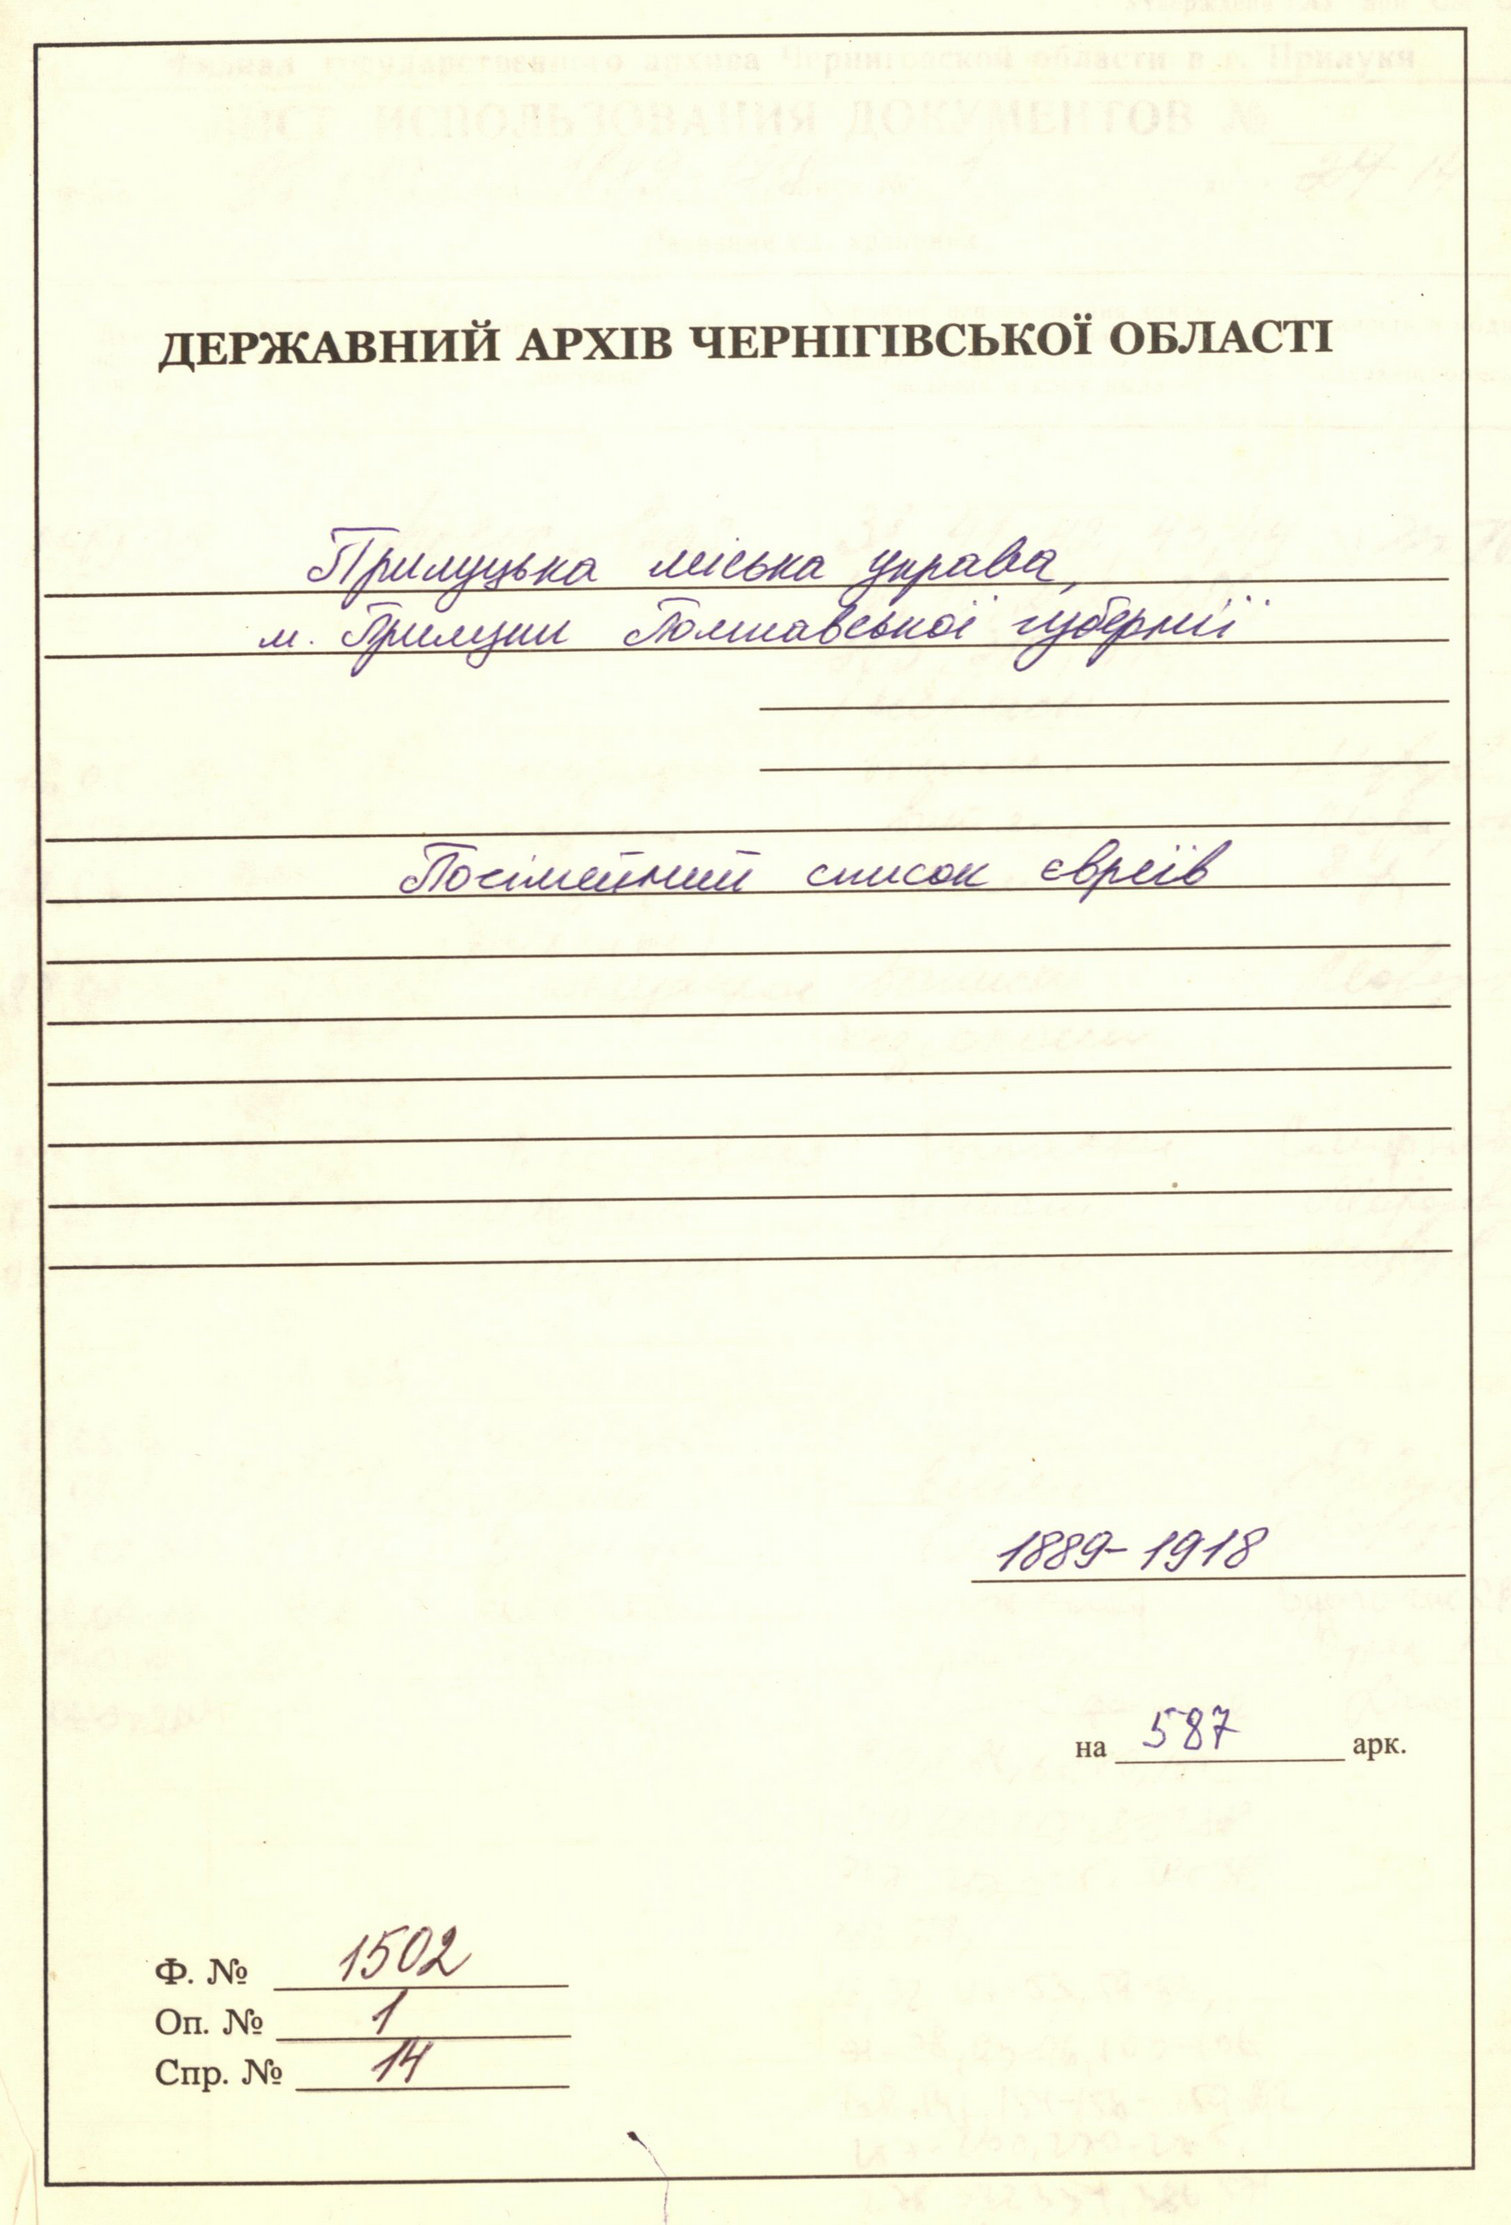 ДЕРЖАВНИЙ АРХІВ ЧЕРНІГІВСЬКОЇ ОБЛАСТІ
Прилуцька міська управа,
м. Прилуки Полтавської губернії
Посімейний список євреїв
1889-1918
на 587 арк.
Ф. № 1502
Оп. № 1
Спр. № 14